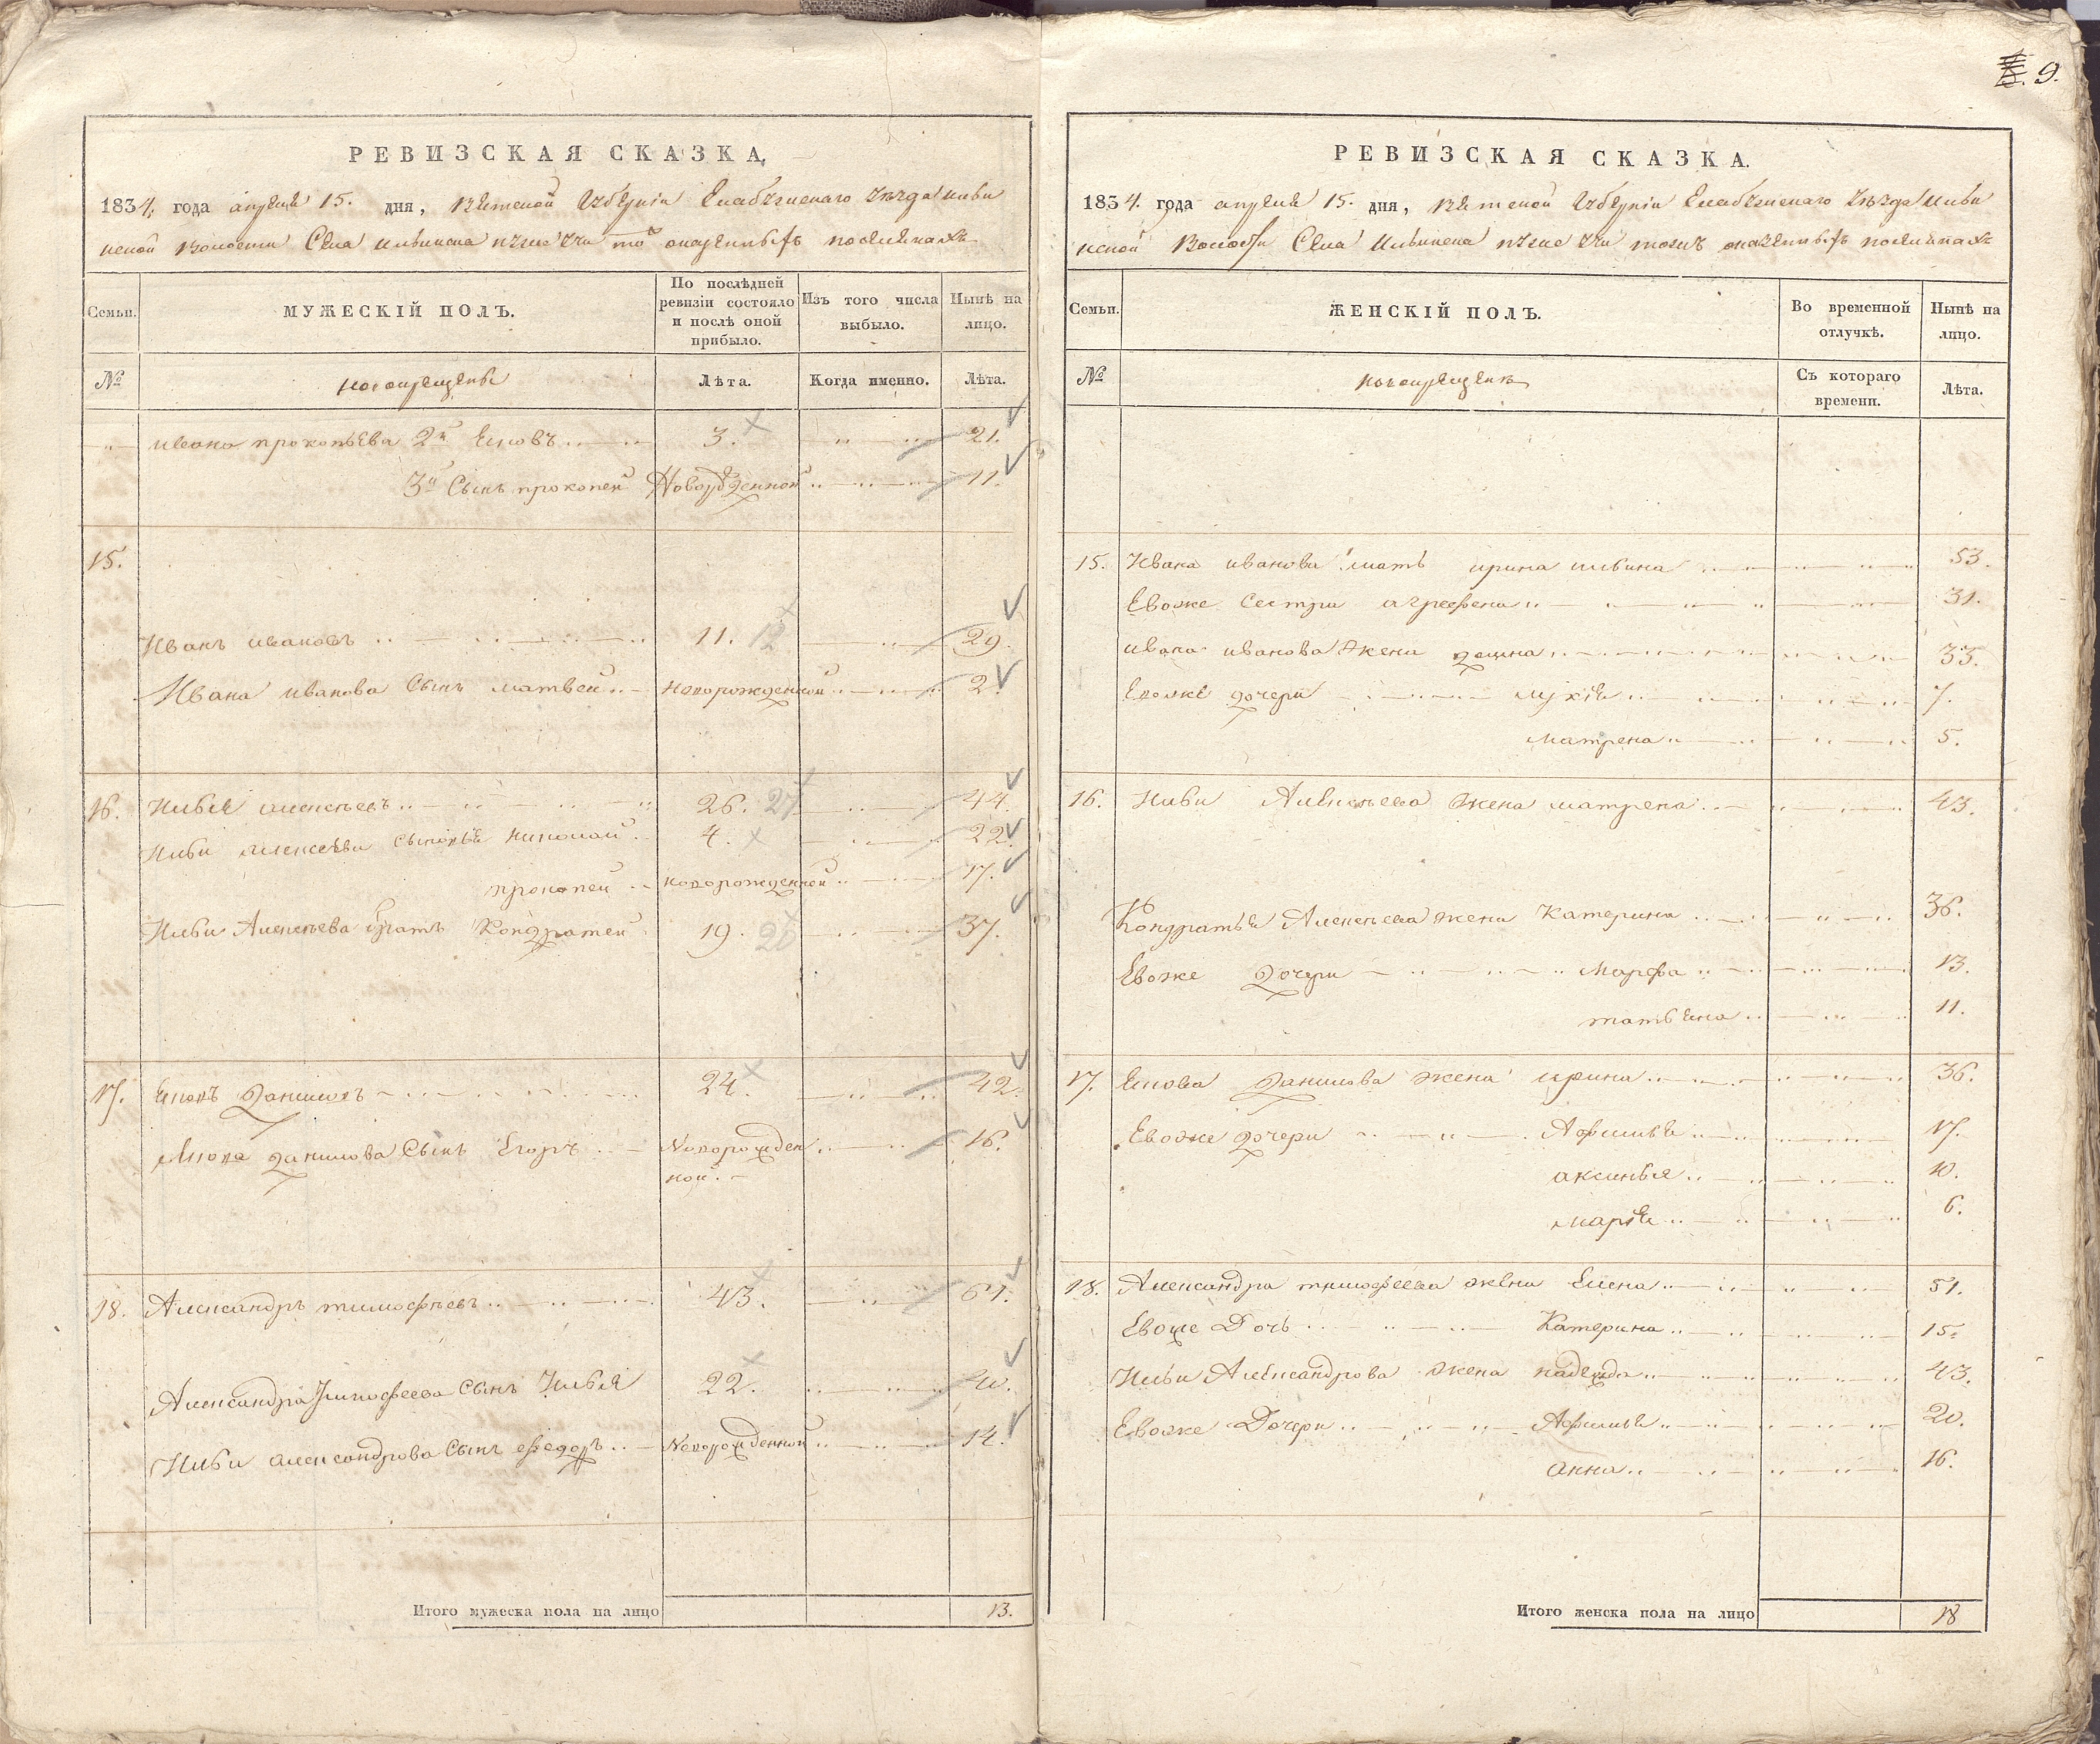 9.
РЕВИЗСКАЯ СКАЗКА,
1834. года апреля 15. дня, Вятской Губерніи Елабужскаго уезда Ильин
ской волости Села Ильинска
Семьи.
МУЖЕСКІЙ ПОЛЪ.
По послѣдней ревизіи состояло и послѣ оной прибыло.
Изъ того числа выбыло.
Нынѣ на лицо.
№
новокрещены
Лѣта.
Когда именно.
Лѣта.
ивана прокопьева 2й 3. 21.
3й Сынъ прокопей Новорожденной 11.
15.
Иванъ ивановъ 11. 12 29.
Ивана иванова Сынъ матвей новорожденной 2.
16. Илья алексеевъ 26. 27 44.
Ильи Алексеева сыновья николай 4. 22.
прокопей новорожденной 17.
Ильи Алексеева братъ Кондратей 19. 20 37.
17. Даниловъ 24. 42.
данилова Сынъ Егоръ Новорожден
ной 16.
18. Александръ тимофеевъ 43. 61.
Александра Тимофеева Сынъ Илья 22. 40.
Ильи александрова Сынъ федоръ Новорожденной 14.
Итого мужеска пола на лицо 13.
РЕВИЗСКАЯ СКАЗКА.
1834. года апреля 15. дня, Вятской Губерніи Елабужскаго уезда Ильин
ской Волости Села Ильинска
Семьи.
ЖЕНСКІЙ ПОЛЪ.
Во временной отлучкѣ.
Нынѣ на лицо.
№
новокрещены
Съ котораго времени.
Лѣта.
15. Ивана иванова мать ирина ильина 53.
Евоже Сестра аграфена 31.
ивана иванова жена 33.
Евоже дочери лукія 7.
матрена 5.
16. Ильи Алексеева жена матрена 43.
Кондратья Алексеева жена Катерина 36.
Евоже Дочери Марфа 13.
татьяна 11.
17. Данилова жена ирина 36.
Евоже дочери Афимья 17.
аксинья 10.
марія 6.
18. Александра тимофеева жена Елена 51.
Евоже Дочь Катерина 15.
Ильи Александрова жена надежда 43.
Евоже Дочери Афимья 20.
анна 16.
Итого женска пола на лицо 18